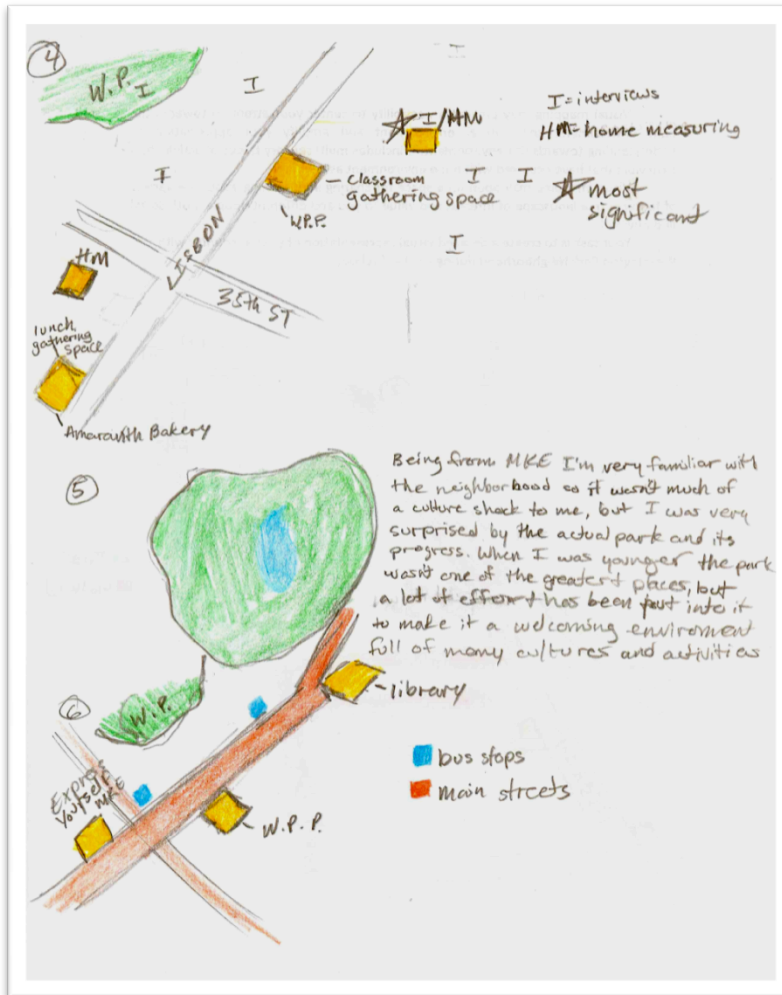 4
W.P. I
I
I
I
I/HM
I = interviews
HM = home measuring
Classroom
gathering space
W.P.P.
I
I
most
significant
I
LISBON
35th ST
HM
lunch
gathering
space
Amaranth Bakery
5
Being from MKE I'm very familiar with
the neighborhood so it wasn't much of
a culture shock to me, but I was very
surprised by the actual park and its
progress. When I was younger the park
wasn't one of the greatest places, but
a lot of effort has been put into it
to make it a welcoming enviroment
full of many cultures and activities
6
W.P.
library
bus stops
main streets
Express
Yourself
MKE
W.P.P.